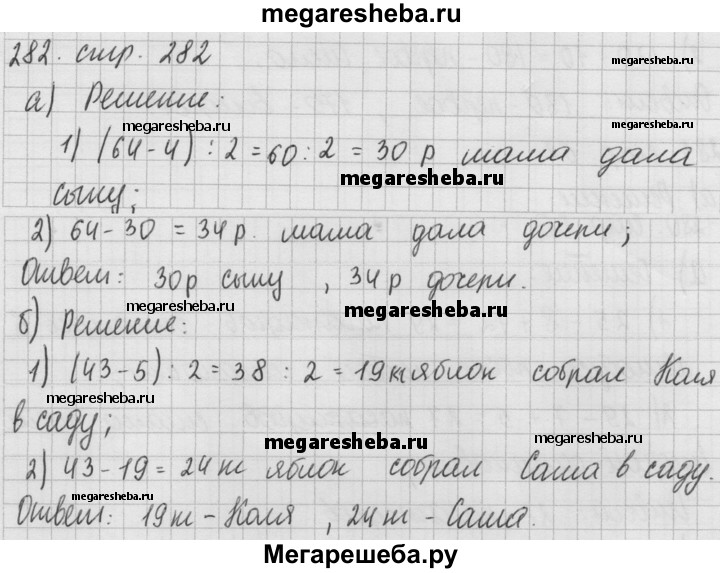 megaresheba.ru
282. стр. 282
megaresheba.ru
а) Решение:
megaresheba.ru
1) (64-4) : 2 = 60 : 2 = 30 р мама дала
megaresheba.ru
сыну;
2) 64-30 = 34 р. мама дала дочери;
Ответ: 30р сыну , 34 р дочери.
megaresheba.ru
megaresheba.ru
megaresheba.ru
б) Решение:
1) (43-5) : 2 = 38 : 2 = 19 кг яблок собрал Коля
megaresheba.ru
в саду;
megaresheba.ru
megaresheba.ru
2) 43-19 = 24 кг яблок собрал Саша в саду.
megaresheba.ru
megaresheba.ru
Ответ: 19кг - Коля , 24кг - Саша.
Мегарешеба.ру